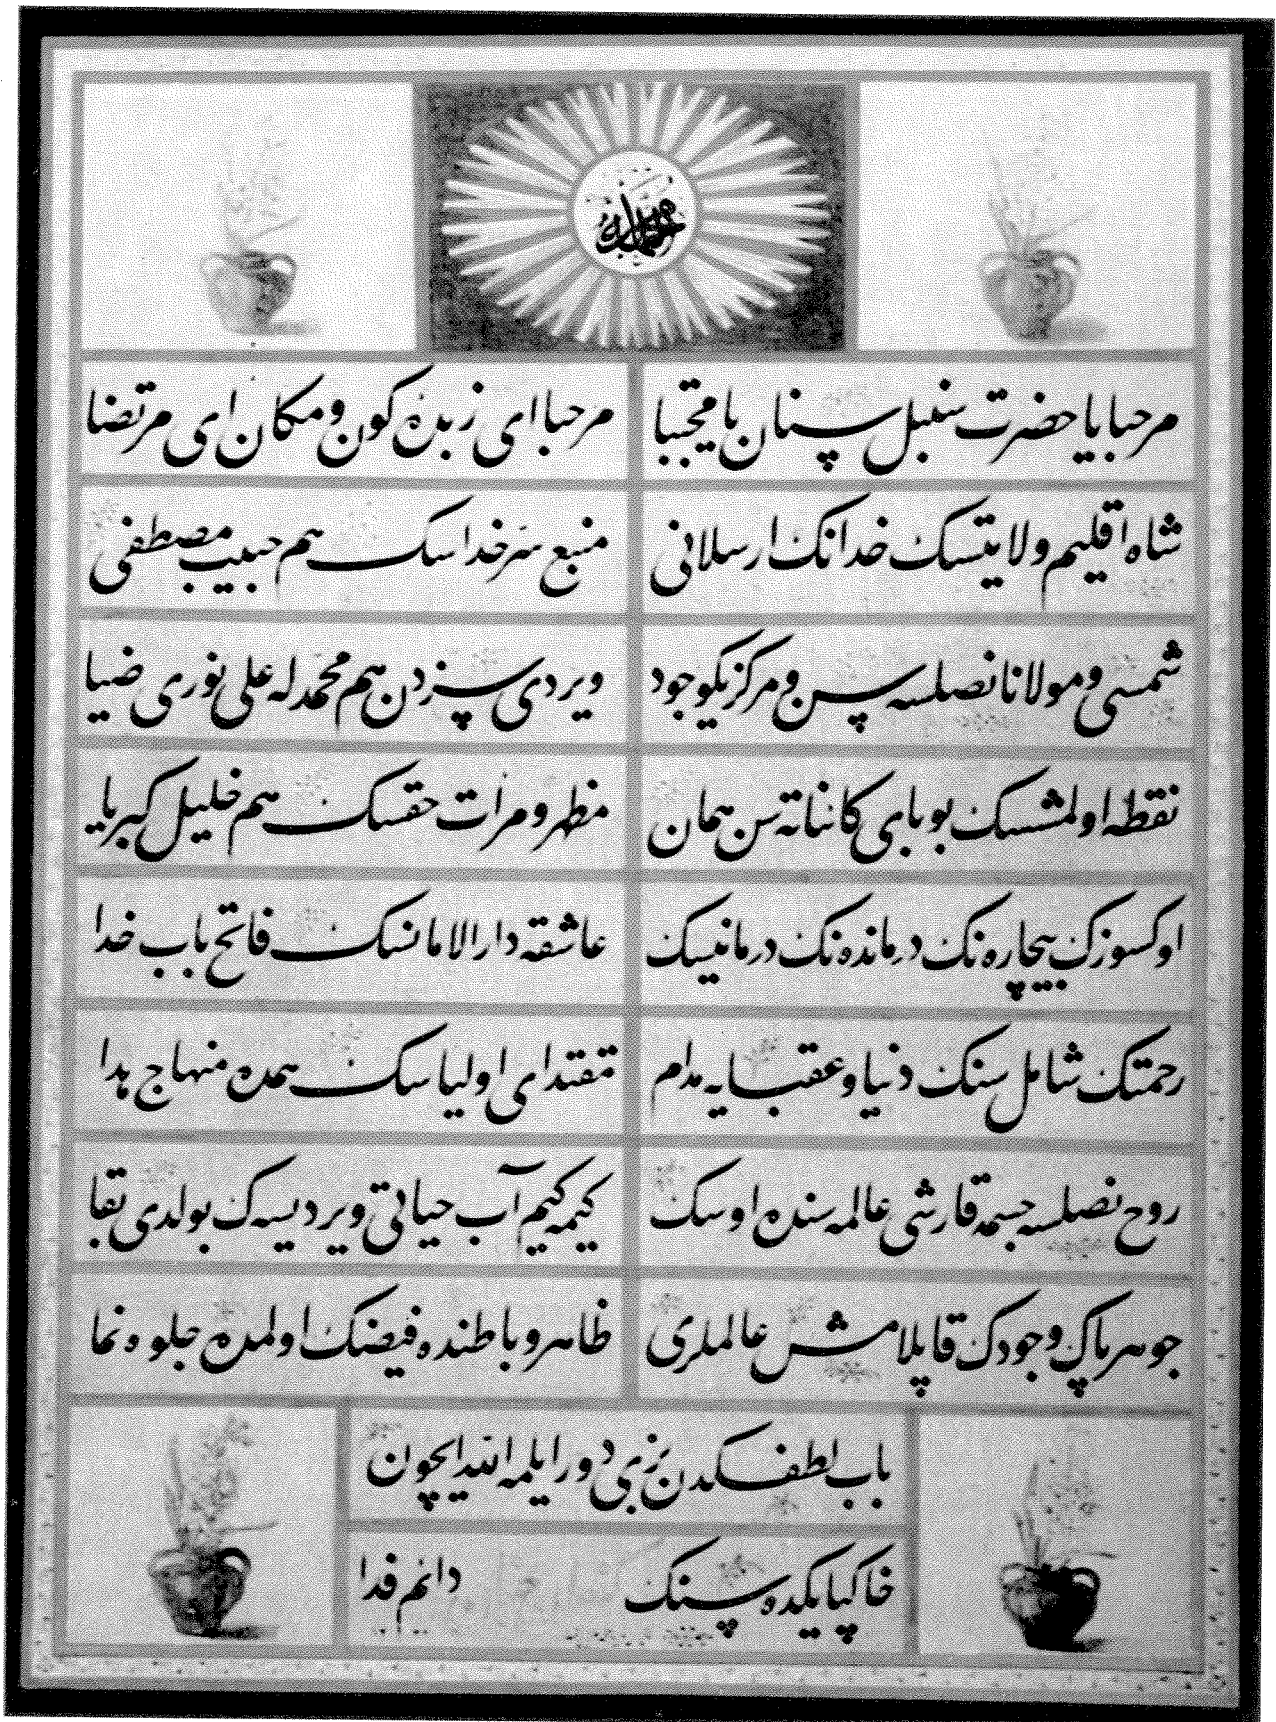 مرحبا يا حضرت سنبل سنان يا مجتبا
مرحبا اى زبدهٔ كون و مكان اى مرتضا
شاه اقليم ولايتسك خدانك ارسلانى
منبع سر خداسك هم حبيب مصطفى
شمسى و مولانا نصلسه سن و مركز يكوجود
ويردى سزدن هم محمدله على نورى ضيا
نقطه اولمشسك بو باى كائناته سن همان
مظهر و مرات حقسك هم خليل كبريا
اوكسوزك بيچاره نك درمانده نك درمانيسك
عاشقه دار الامانسك فاتح باب خدا
رحمتك شامل سنك دنيا و عقبايه مدام
مقتداى اولياسك همده منهاج هدا
روح نصلسه جسمه قارشى عالمه سنده اوسك
كيمه كيم آب حياتى ويرديسه ك بولدى بقا
جوهر پاك وجودك قاپلامش عالملرى
ظاهر و باطنده فيضك اولمده جلوه نما
باب لطفكدن بزى دور ايلمه الله ايچون
خاكپايكده سنك دائم فدا